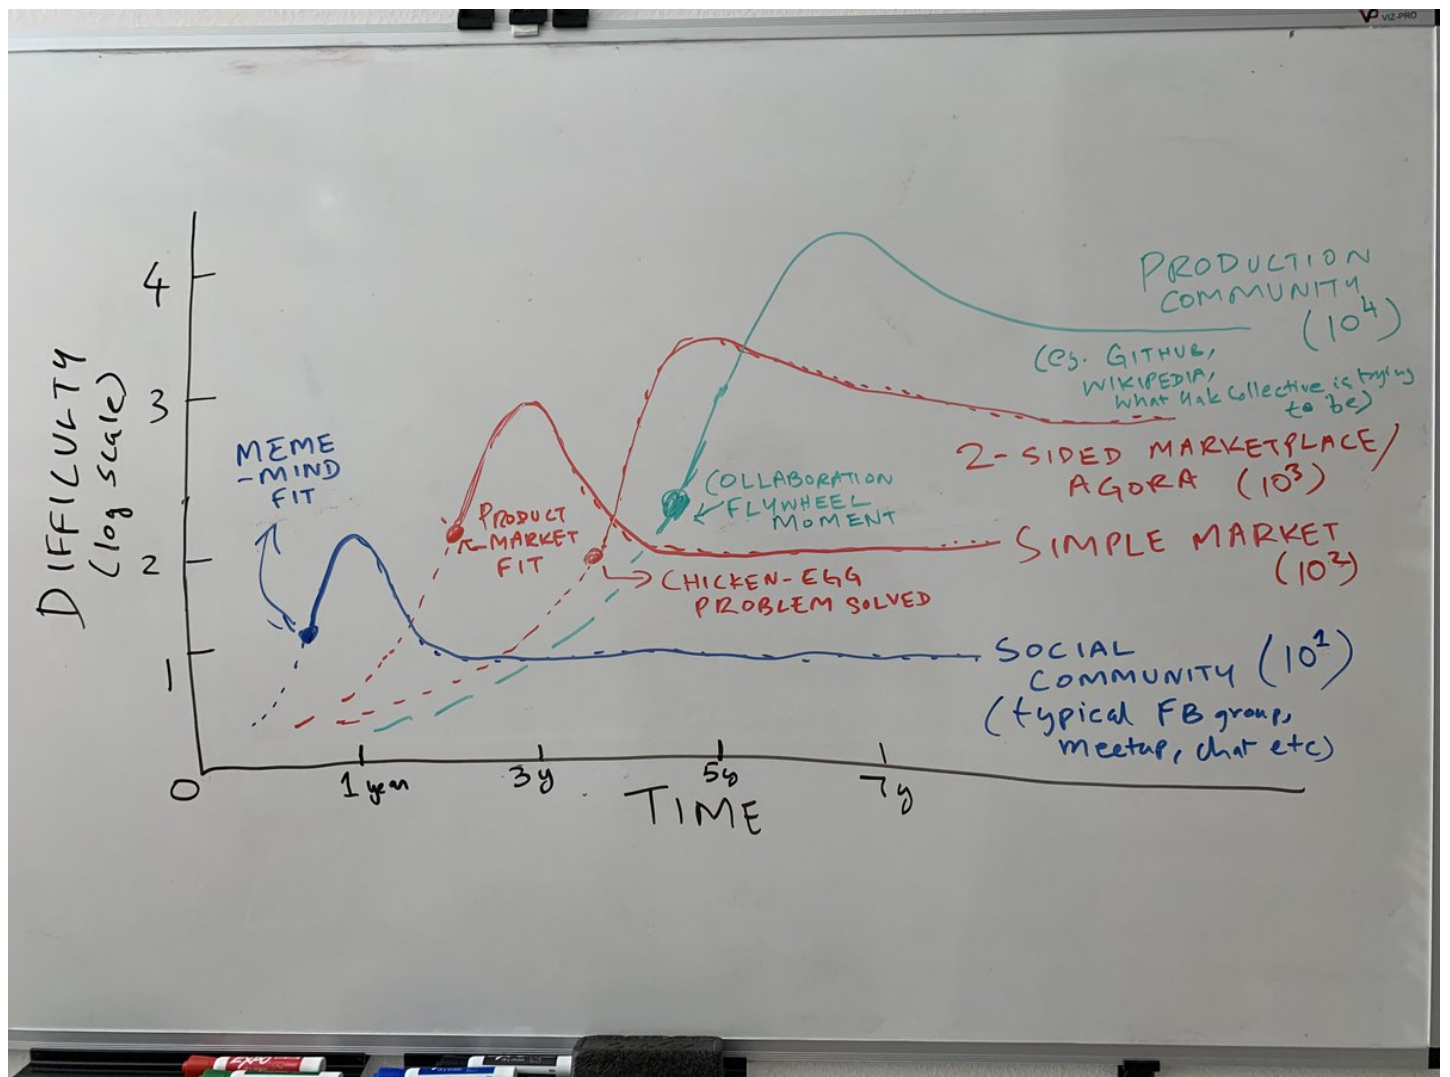 VIZ-PRO
4
3
2
1
0
DIFFICULTY
(log scale)
MEME
-MIND
FIT
PRODUCT
-MARKET
FIT
COLLABORATION
FLYWHEEL
MOMENT
CHICKEN-EGG
PROBLEM SOLVED
PRODUCTION
COMMUNITY
(10^4)
(eg. GITHUB,
WIKIPEDIA,
what Yak Collective is trying
to be)
2-SIDED MARKETPLACE/
AGORA (10^3)
SIMPLE MARKET
(10^2)
SOCIAL
COMMUNITY (10^1)
(typical FB group,
meetup, chat etc)
1 year
3y
5y
7y
TIME
EXPO